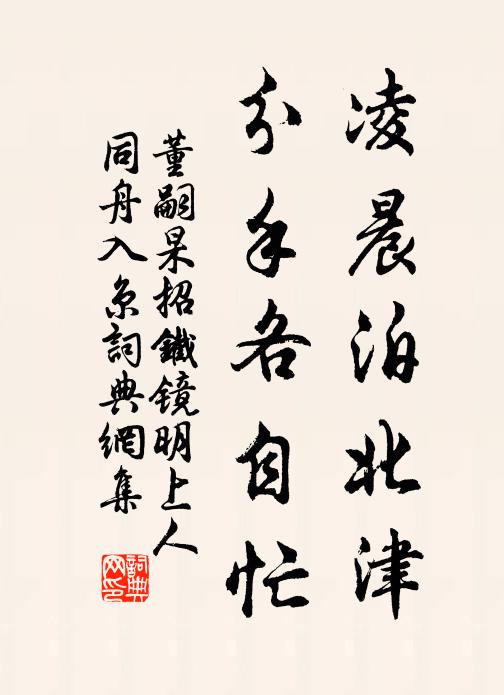 凌晨泊北津
分手各自忙
董嗣杲招鐵镜明上人
同舟入京詞典網集
詞典
网印